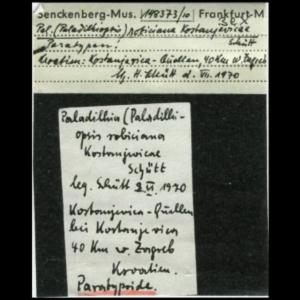 Senckenberg-Mus. 198373/10 Frankfurt-M
Pal. (Paladilhiopsis) robiciana Kostanjevicae
Schütt
Paratypen!
Kroatien: Kostanjevica-Quellen, 40 Km W Zagreb
H. Schütt d. VII. 1970
Paladilhia (Paladilhi-
opsis robiciana
Kostanjevicae
Schütt
leg. Schütt 1970
Kostanjevica-Quellen
bei Kostanjevica
40 Km w. Zagreb
Kroatien.
Paratypoide.